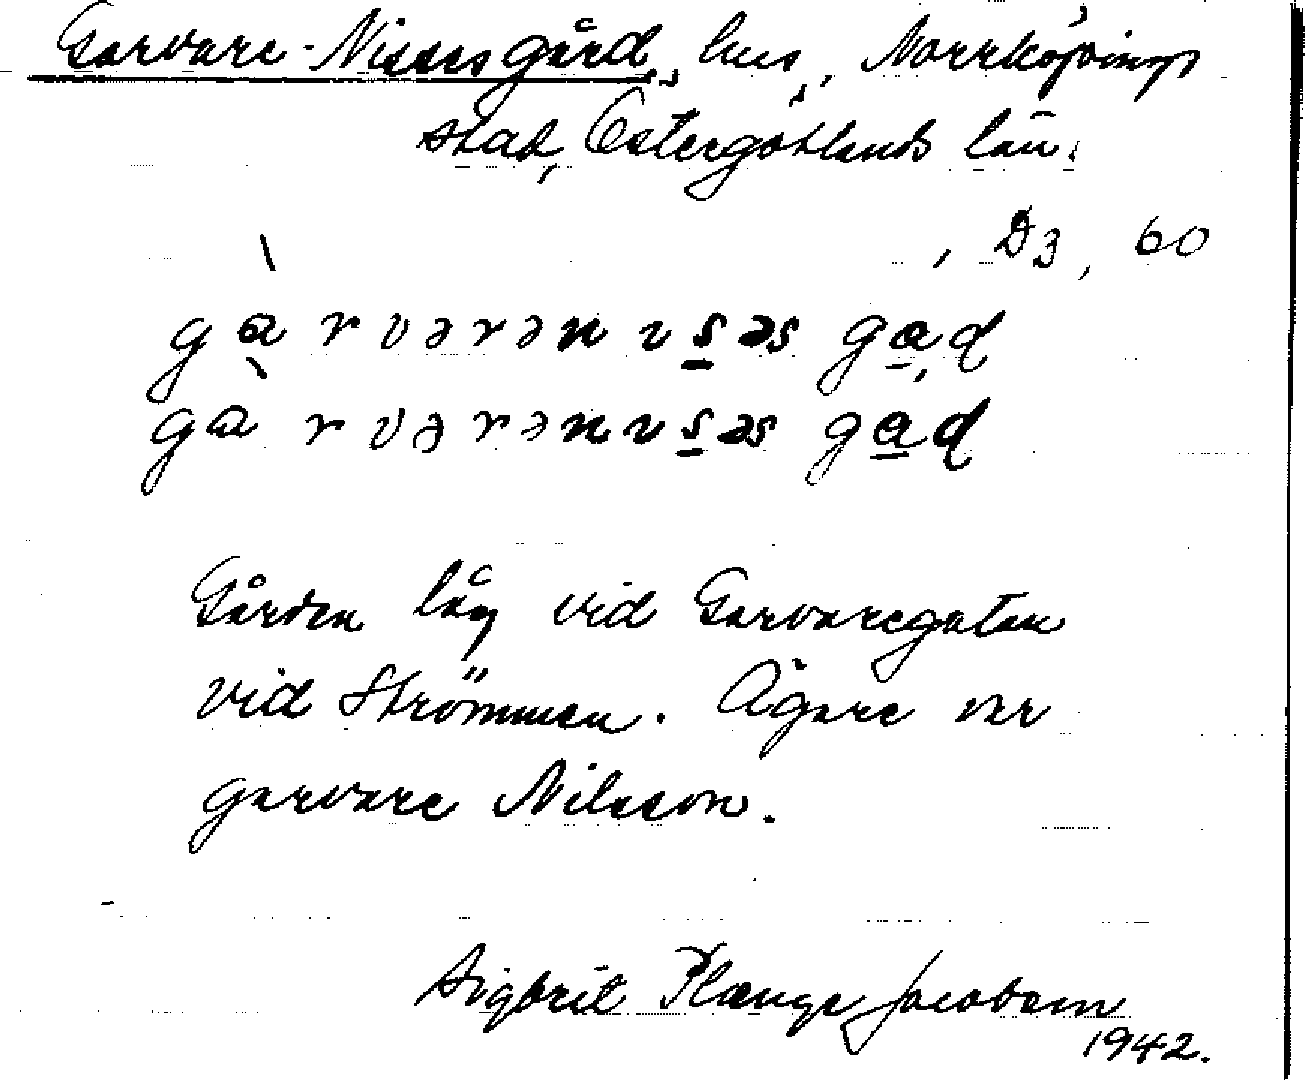 Garvare-Nisses gård, hus, Norrköpings
stad, Östergötlands län.
D3, 60
gàrvərənɩsəs gad
gàrvərənɩsəs gad
Gården låg vid Garvaregatan
vid Strömmen. Ägare var
garvare Nilsson.
Sigbrit Plænge Jacobson
1942.